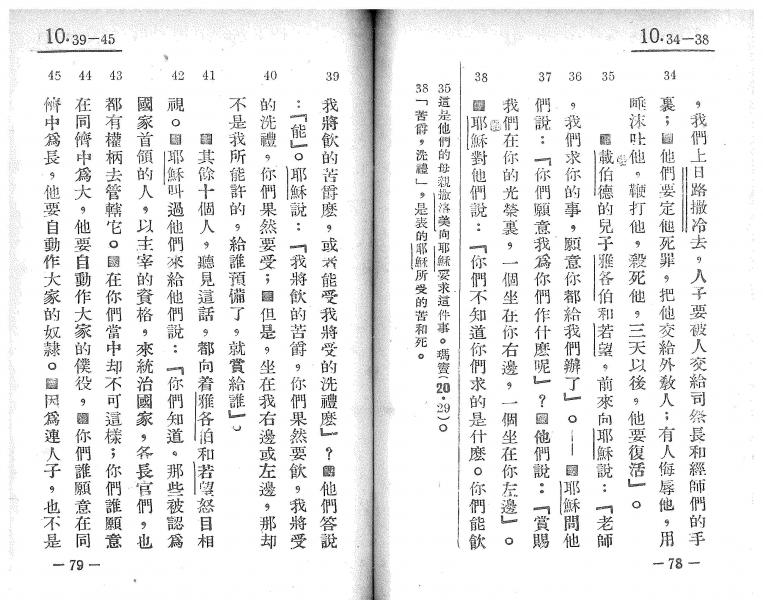 10.34—38
，我們上日路撒冷去，人子要被人交給司祭長和經師們的手
34
裏；他們要定他死罪，把他交給外教人；有人侮辱他，用
唾沫吐他，鞭打他，殺死他，三天以後，他要復活」。
35
載伯德的兒子雅各伯和若望，前來向耶穌說：「老師
36
，我們求你的事，願意你都給我們辦了」。——耶穌問他
37
們說：「你們願意我爲你們作什麽呢」？他們說：「賞賜
我們在你的光榮裏，一個坐在你右邊，一個坐在你左邊」。
38
耶穌對他們說：「你們不知道你們求的是什麽。你們能飲
35這是他們的母親撒落美向耶穌要求這件事。瑪竇(20.29)。
38「苦爵，洗禮」，是表的耶穌所受的苦和死。
—78—
10.39—45
39
我將飲的苦爵麽，或者能受我將受的洗禮麽」？他們答說
：「能」。耶穌說：「我將飲的苦爵，你們果然要飲，我將受
40
的洗禮，你們果然要受；但是，坐在我右邊或左邊，那却
不是我所能許的，給誰預備了，就賞給誰」。
41
其餘十個人，聽見這話，都向着雅各伯和若望怒目相
42
視。耶穌叫過他們來給他們說：「你們知道。那些被認爲
國家首領的人，以主宰的資格，來統治國家，各長官們，也
43
都有權柄去管轄它。在你們當中却不可這樣；你們誰願意
44
在同儕中爲大，他要自動作大家的僕役，你們誰願意在同
45
儕中爲長，他要自動作大家的奴隸。因爲連人子，也不是
—79—